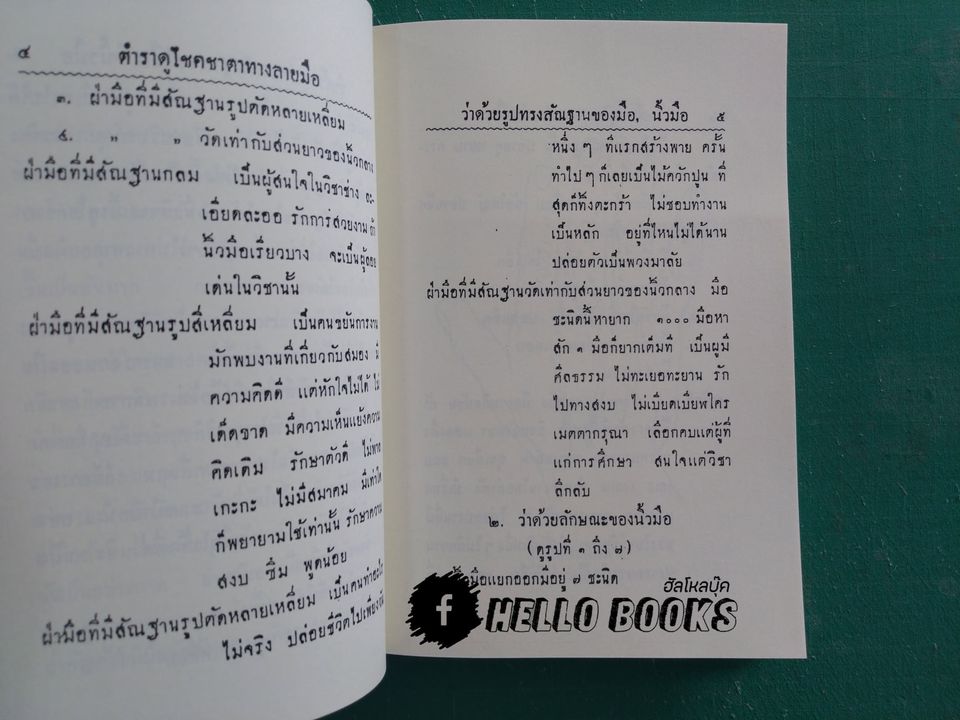 ๔ ตำราดูโชคชาตาทางลายมือ
๓. ฝ่ามือที่มีสัณฐานรูปตัดหลายเหลี่ยม
๔. " " วัดเท่ากับส่วนยาวของนิ้วกลาง
ฝ่ามือที่มีสัณฐานกลม เป็นผู้สนใจในวิชาช่าง ละ-
เอียดละออ รักการสวยงาม ถ้า
นิ้วมือเรียวบาง จะเป็นผู้ลอย
เด่นในวิชานั้น
ฝ่ามือที่มีสัณฐานรูปสี่เหลี่ยม เป็นคนขยันการงาน
มักพบงานที่เกี่ยวกับสมอง มี
ความคิดดี แต่หักใจไม่ได้ ไม่
เด็ดขาด มีความเห็นแย้งความ
คิดเดิม รักษาตัวดี ไม่พาล
เกะกะ ไม่มีสมาคม มีเท่าใด
ก็พยายามใช้เท่านั้น รักษาความ
สงบ ซึม พูดน้อย
ฝ่ามือที่มีสัณฐานรูปตัดหลายเหลี่ยม เป็นคนทำอะไร
ไม่จริง ปล่อยชีวิตไปเพียงวัน
ว่าด้วยรูปทรงสัณฐานของมือ, นิ้วมือ ๕
หนึ่ง ๆ ที่แรกสร้างพาย ครั้น
ทำไป ๆ ก็เลยเป็นไม้ควักปูน ที่
สุดก็ทิ้งตะกร้า ไม่ชอบทำงาน
เป็นหลัก อยู่ที่ไหนไม่ได้นาน
ปล่อยตัวเป็นพวงมาลัย
ฝ่ามือที่มีสัณฐานวัดเท่ากับส่วนยาวของนิ้วกลาง มือ
ชะนิดนี้หายาก ๑๐๐๐ มือหา
สัก ๑ มือก็ยากเต็มที่ เป็นผู้มี
ศีลธรรม ไม่ทะเยอทะยาน รัก
ไปทางสงบ ไม่เบียดเบียฬใคร
เมตตากรุณา เลือกคบแต่ผู้ที่
แก่การศึกษา สนใจแต่วิชา
ลึกลับ
๒. ว่าด้วยลักษณะของนิ้วมือ
(ดูรูปที่ ๑ ถึง ๗)
นิ้วมือแยกออกมีอยู่ ๗ ชะนิด
ฮัลโหลบุ๊ค
f HELLO BOOKS